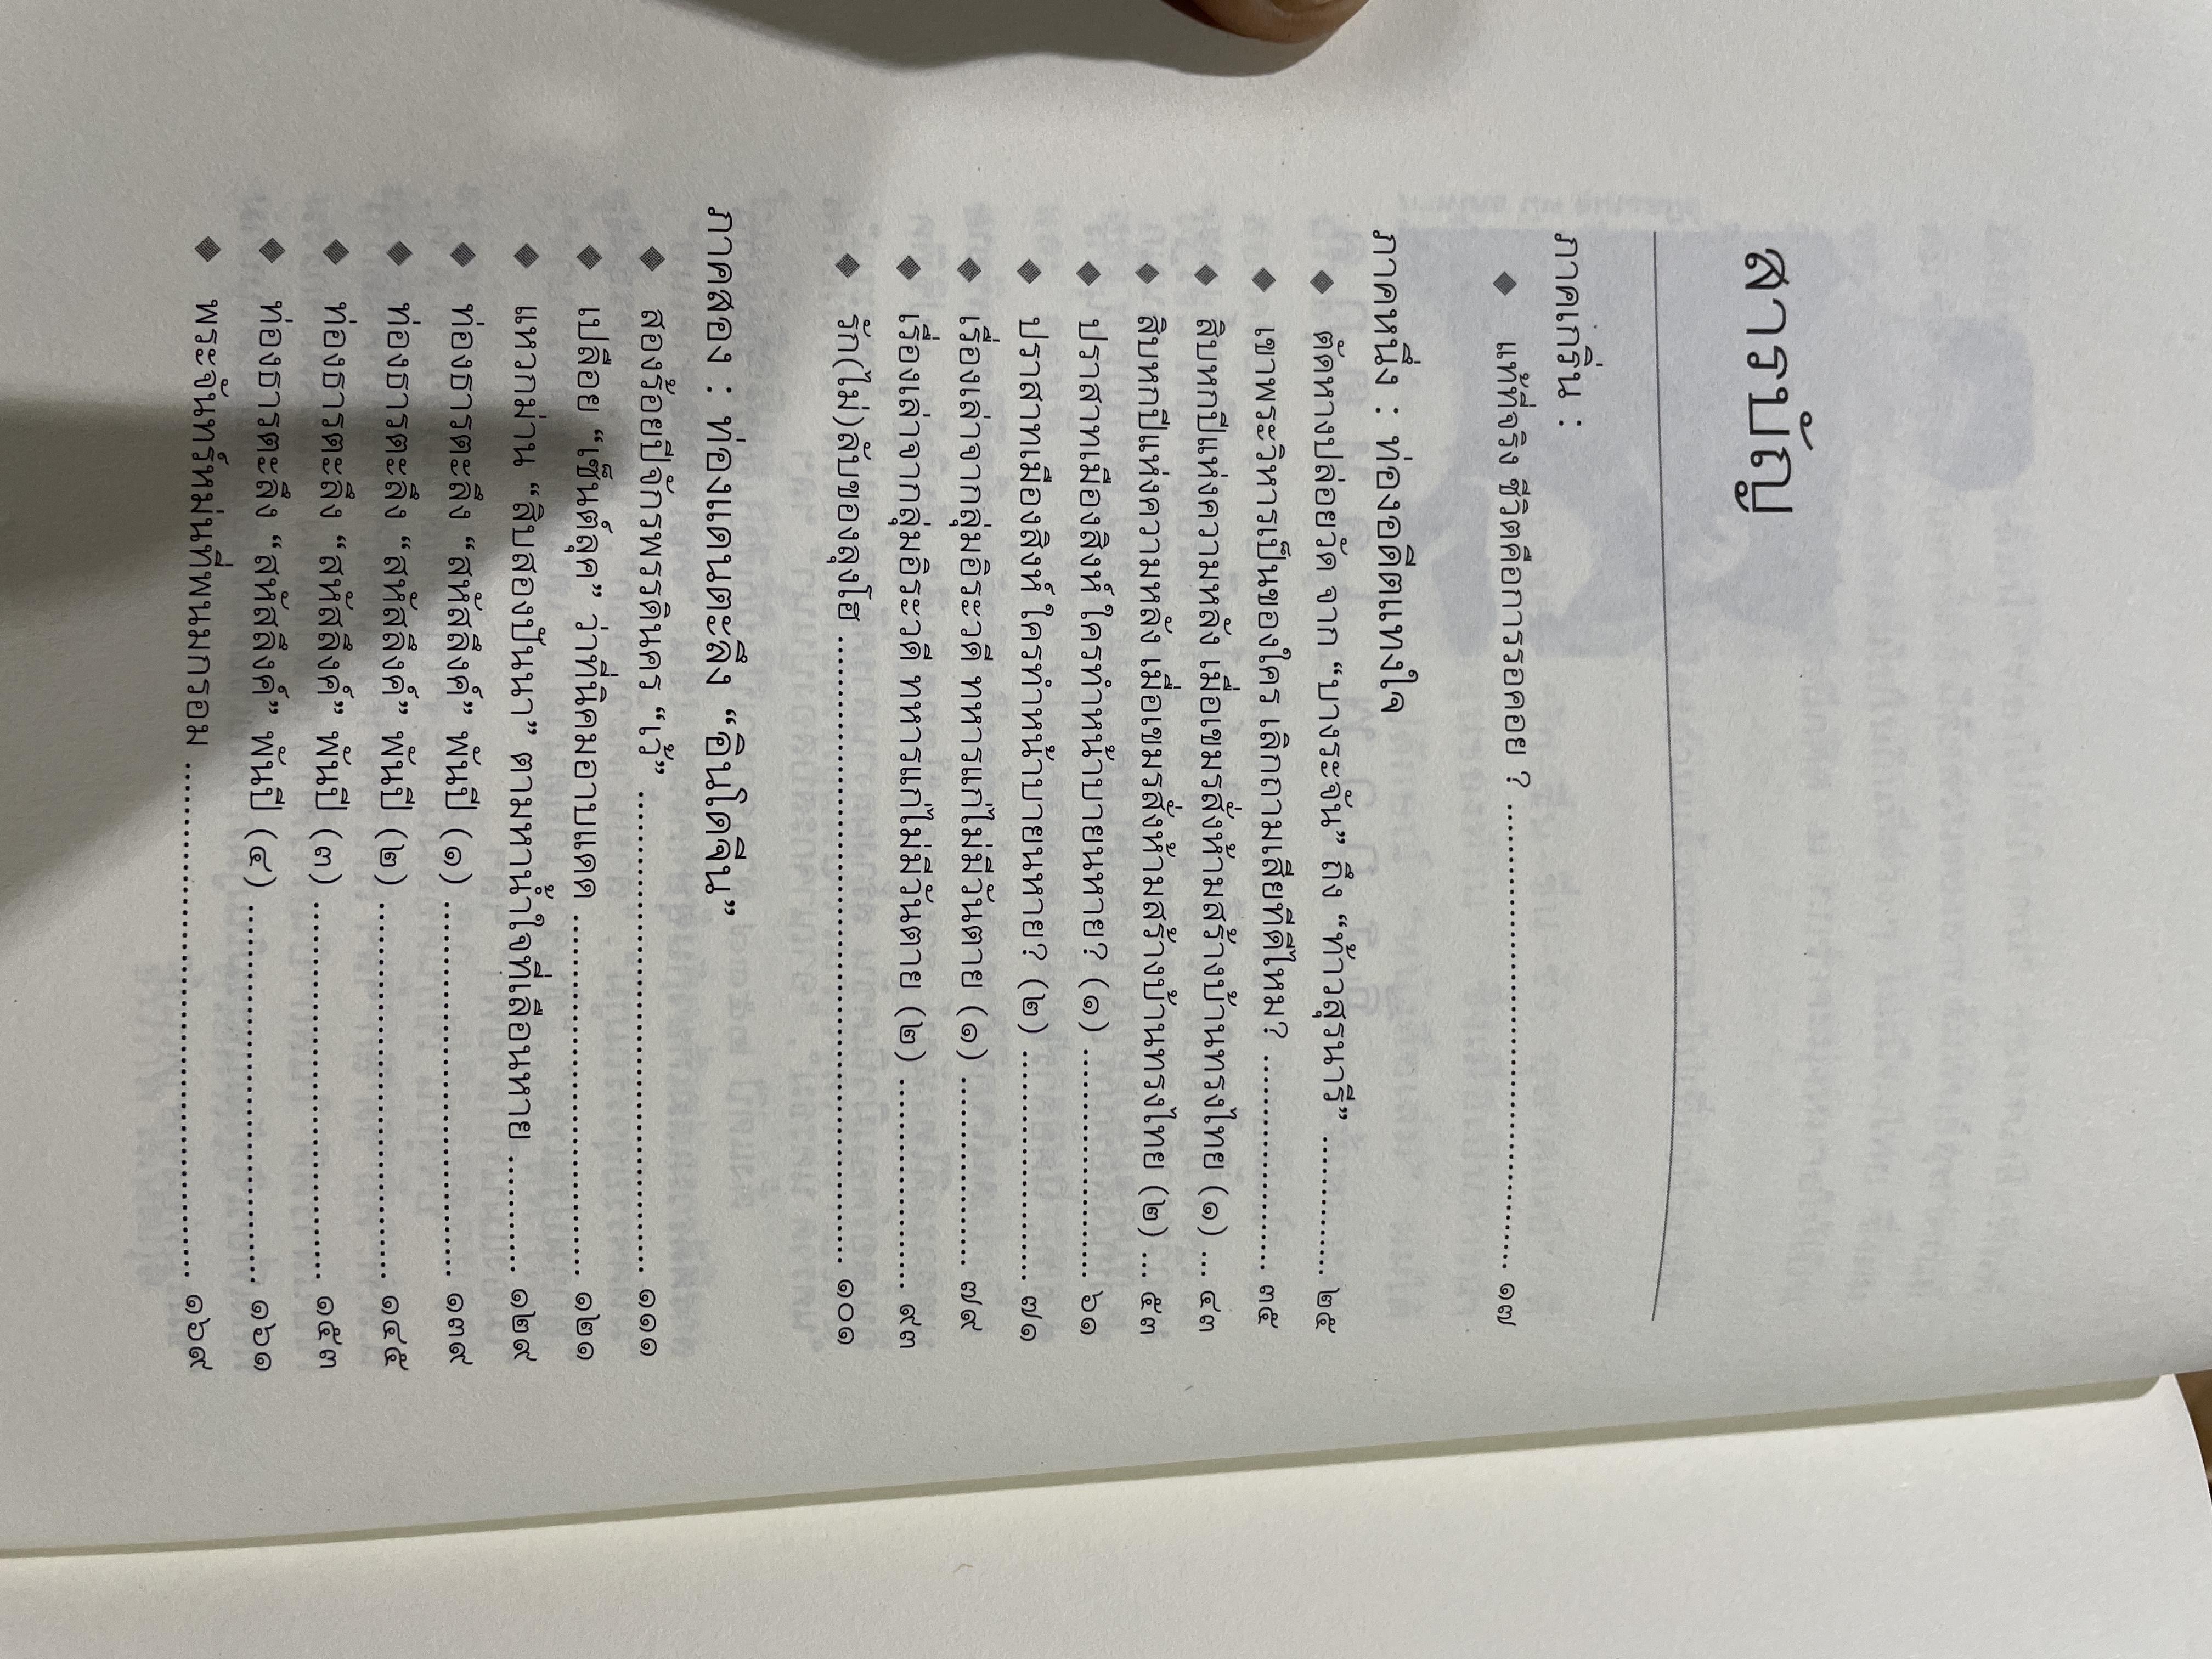 สารบัญ
ภาคเกริ่น :
◆ แท้ที่จริง ชีวิตคือการรอคอย ? ................................................ ๑๗
ภาคหนึ่ง : ท่องอดีตแทงใจ
◆ ตัดหางปล่อยวัด จาก “บางระจัน” ถึง “ท้าวสุรนารี” ............... ๒๕
◆ เขาพระวิหารเป็นของใคร เลิกถามเสียทีดีไหม? ....................... ๓๕
◆ สิบหกปีแห่งความหลัง เมื่อเขมรสั่งห้ามสร้างบ้านทรงไทย (๑) ... ๔๓
◆ สิบหกปีแห่งความหลัง เมื่อเขมรสั่งห้ามสร้างบ้านทรงไทย (๒) ... ๕๓
◆ ปราสาทเมืองสิงห์ ใครทำหน้าบายนหาย? (๑) ........................ ๖๑
◆ ปราสาทเมืองสิงห์ ใครทำหน้าบายนหาย? (๒) ........................ ๗๑
◆ เรื่องเล่าจากลุ่มอิระวดี ทหารแก่ไม่มีวันตาย (๑) .................... ๗๙
◆ เรื่องเล่าจากลุ่มอิระวดี ทหารแก่ไม่มีวันตาย (๒) ...................... ๙๓
◆ รัก(ไม่)ลับของลุงโฮ ................................................................ ๑๐๑
ภาคสอง : ท่องแดนตะลึง “อินโดจีน”
◆ สองร้อยปีจักรพรรดินคร “เว้” .................................................. ๑๑๑
◆ เปลือย “เซ็นต์ลุค” ว่าที่นิคมอาบแดด ..................................... ๑๒๑
◆ แหวกม่าน “สิบสองปันนา” ตามหาน้ำใจที่เลือนหาย ............ ๑๒๙
◆ ท่องธารตะลึง “สหัสลึงค์” พันปี (๑) ...................................... ๑๓๙
◆ ท่องธารตะลึง “สหัสลึงค์” พันปี (๒) ...................................... ๑๔๕
◆ ท่องธารตะลึง “สหัสลึงค์” พันปี (๓) ...................................... ๑๕๓
◆ ท่องธารตะลึง “สหัสลึงค์” พันปี (๔) ...................................... ๑๖๑
◆ พระจันทร์หม่นที่พนมกรอม ..................................................... ๑๖๙